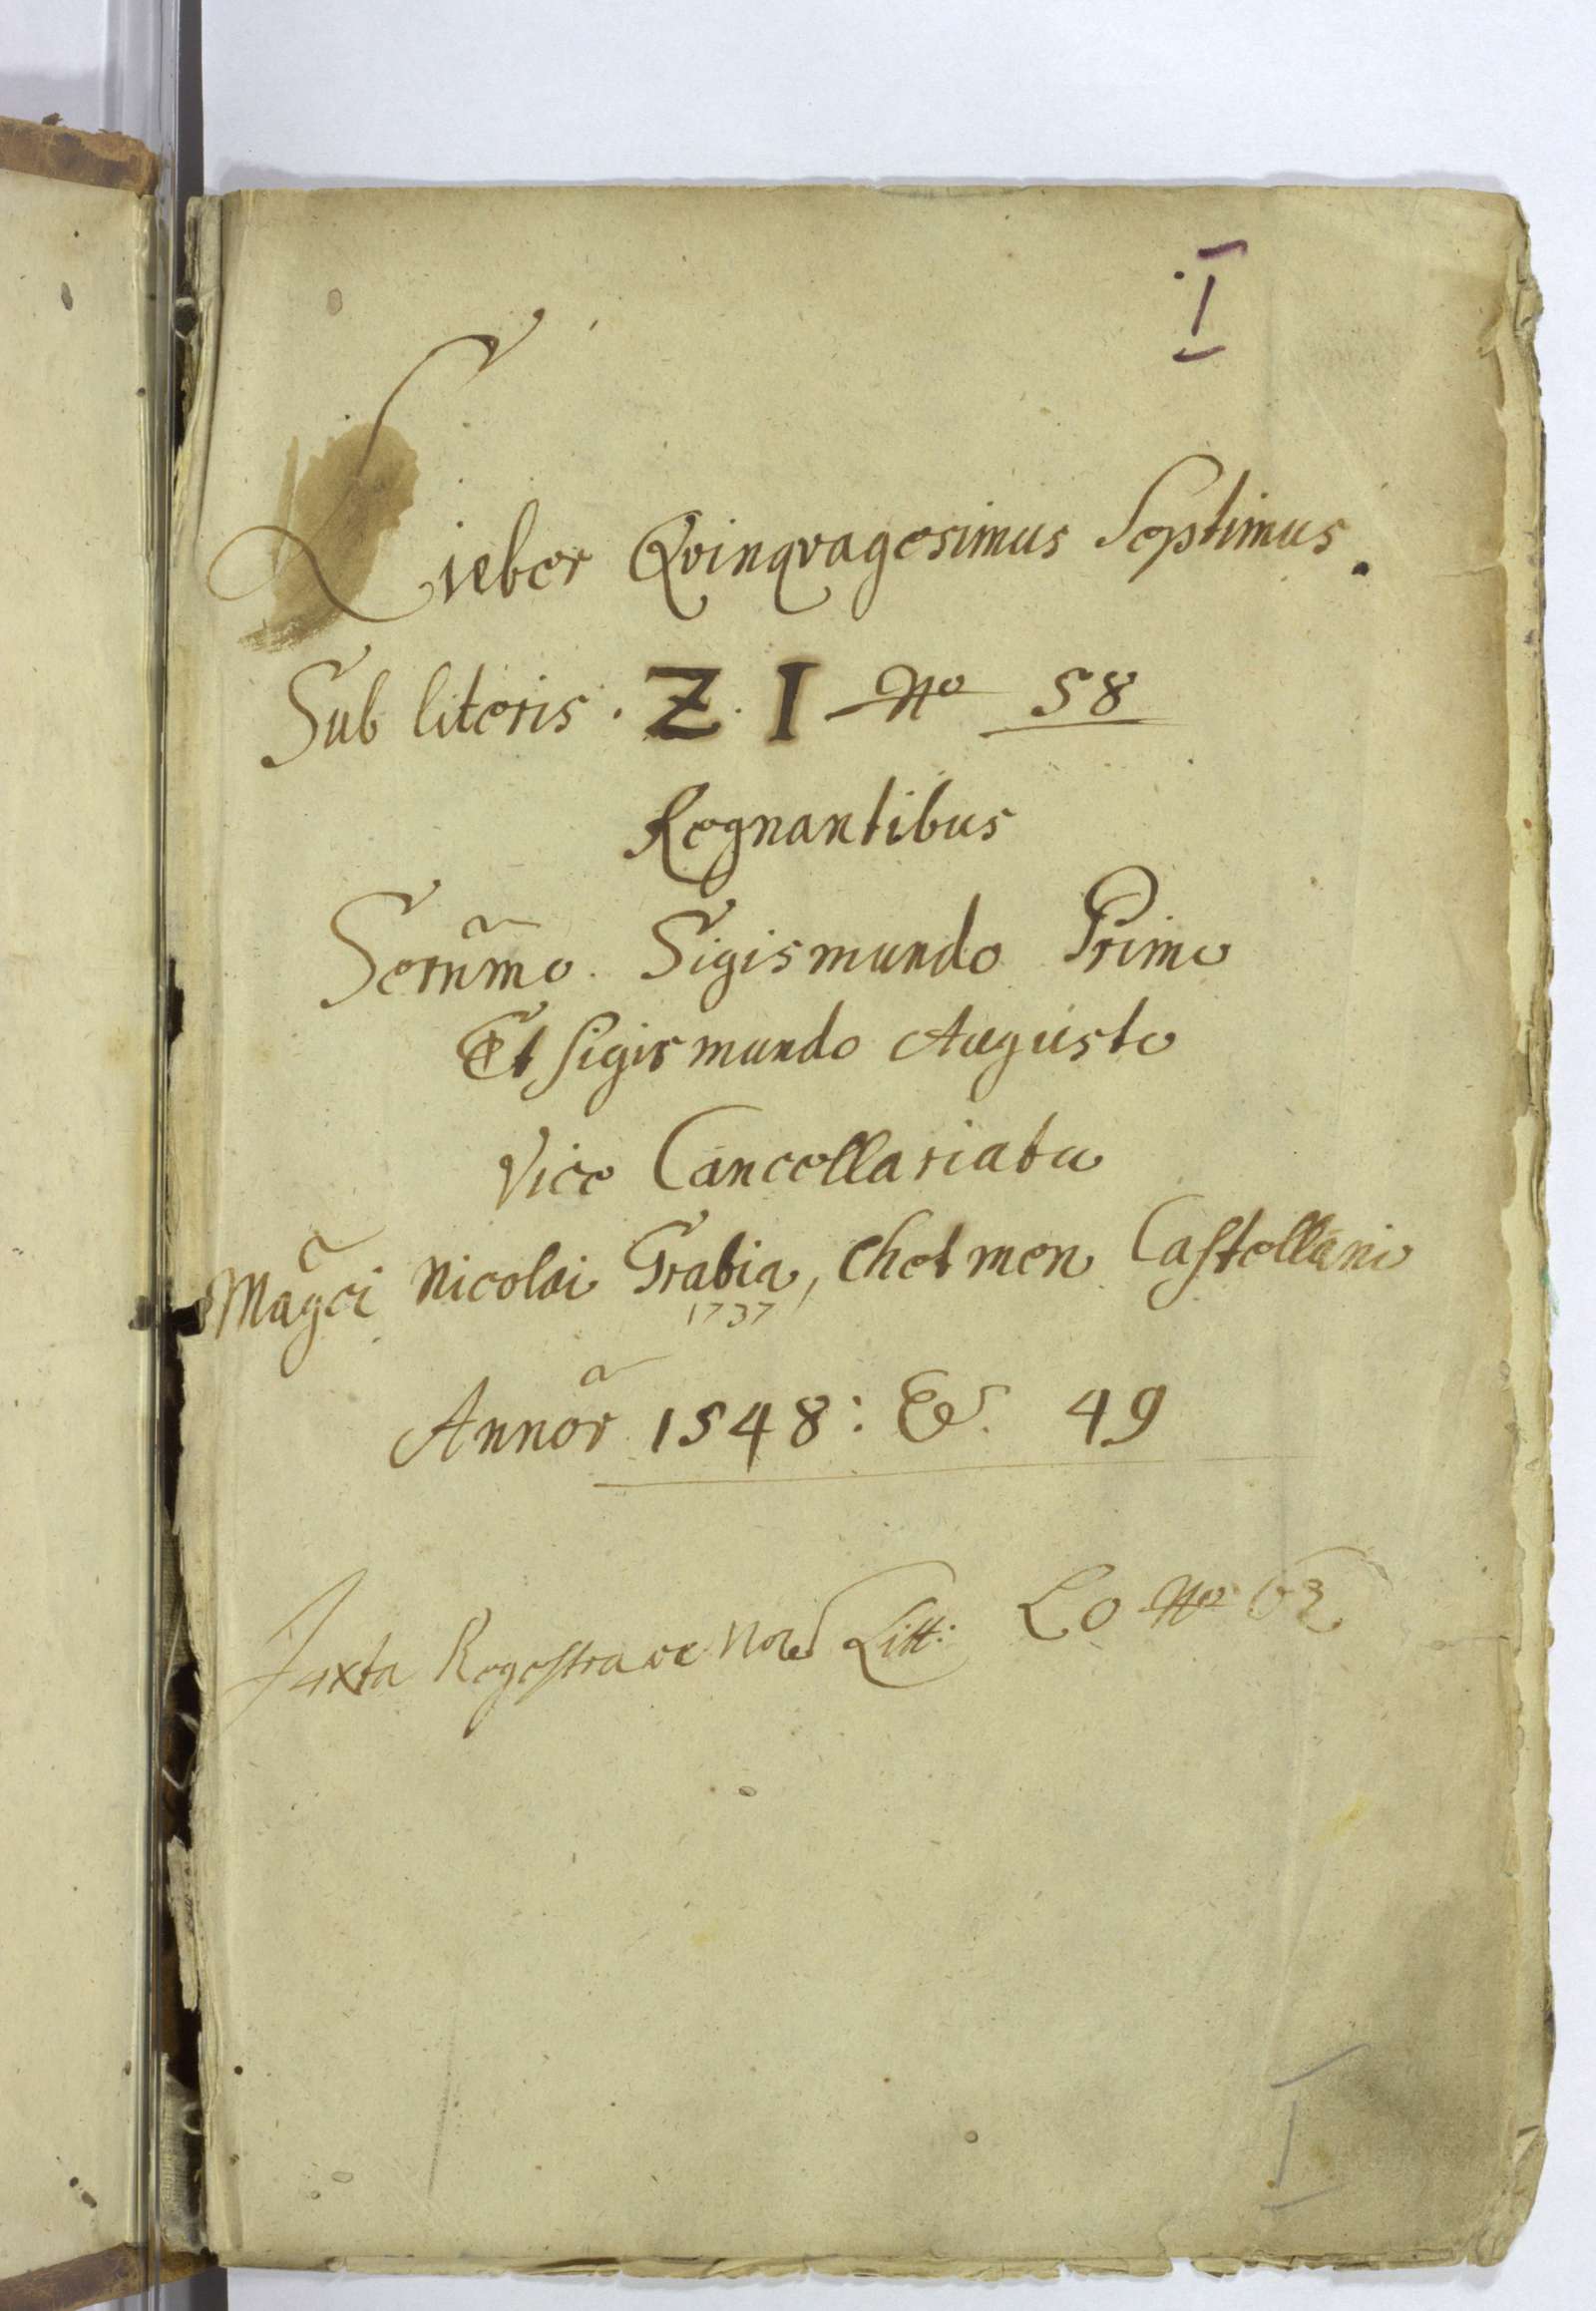 I
Lieber Qvinqvagesimus Septimus.
Sub literis. Z. I No 58
Regnantibus
Serñmo. Sigismundo Primo
Et Sigismundo Augusto
Vice Cancellariatu
Magc̃i Nicolai Grabia, Chelmen Castellani
1737
Annor̃ 1548: & 49
Juxta Regestra Litt: LO No 63
I